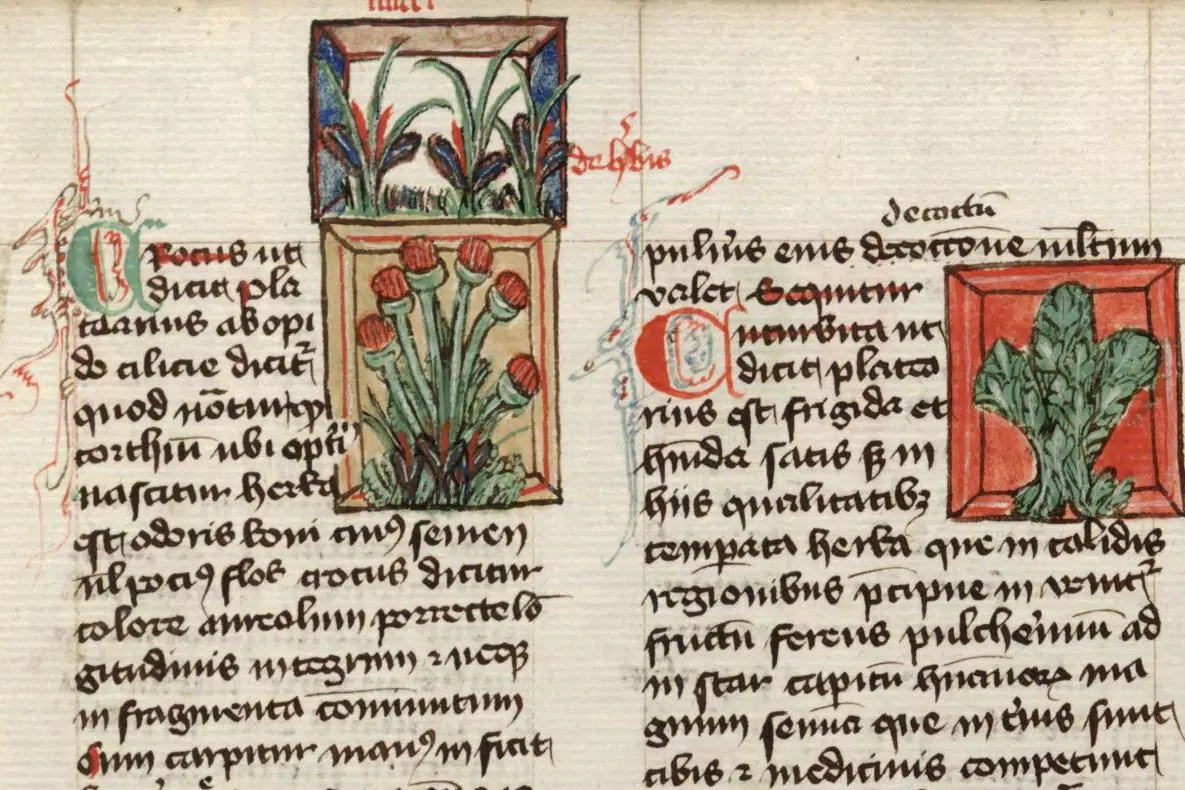 de hͬbis
Crocus ut
dicit pla
tearius ab opi
do cilicie dicit᷑
quod nōtur
corthiū ubi opti
nascitur herba
est odoris boni cuiꝰ semen
ul pociꝰ flos crocus dicitur
colore aureolum porrecte lō
gitudinis integrum ⁊ neqꝫ
in fragmenta cōminutum
Cum carpitur manꝰ inficit
decoctū
puluis eius decoctione ml̄tum
valet Sequitur
Cucurbita ut
dicit platea
rius est frigida et
hūida satis sꝫ in
hiis qualitatibꝫ
temperata herba que in calidis
regionibus p̄cipue in venit᷑
fructū ferens pulcherimū ad
in star capitū hūanoꝝ ma
gnum semina que in eius sunt
cibis ⁊ medicinis competunt